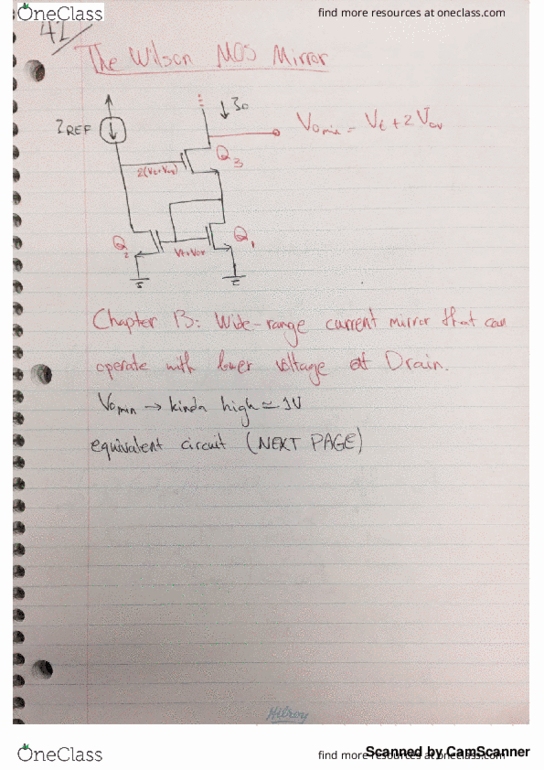 OneClass
find more resources at oneclass.com
42
The Wilson MOS Mirror
↓ Io
IREF
Vomin = Vt + 2Vov
Q3
2(Vt+Vov)
Q2
Q1
Vt+Vov
Chapter 13: Wide-range current mirror that can
operate with lower voltage at Drain.
Vomin → kinda high ≃ 1V
equivalent circuit (NEXT PAGE)
Hilroy
OneClass
find more resources at oneclass.com
Scanned by CamScanner